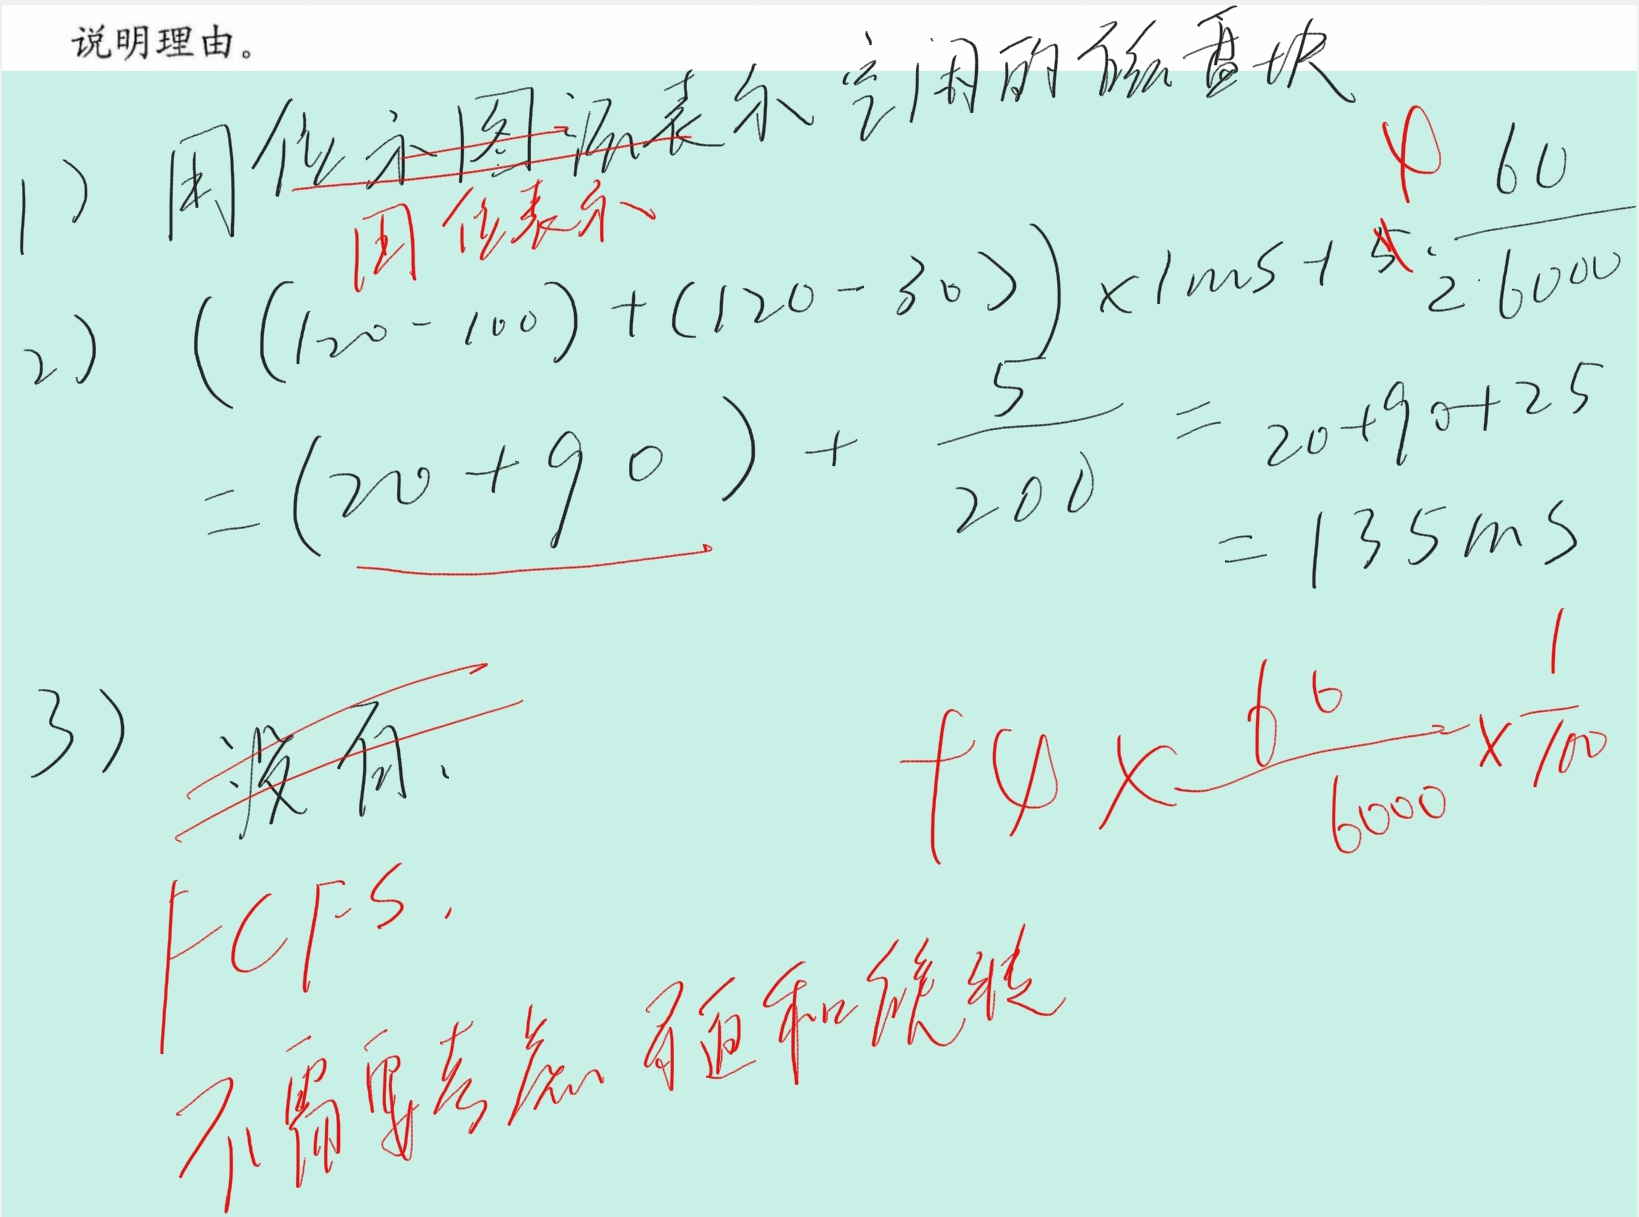 说明理由。
1) 用位示图源表示空闲的磁盘块
用位表示
2) ((120-100)+(120-30))×1ms+5·60/2·6000
4
=(20+90)+5/200=20+90+25
=135ms
3) 没有、
+4×60/6000×1/100
FCFS.
不需要考虑寻道和旋转